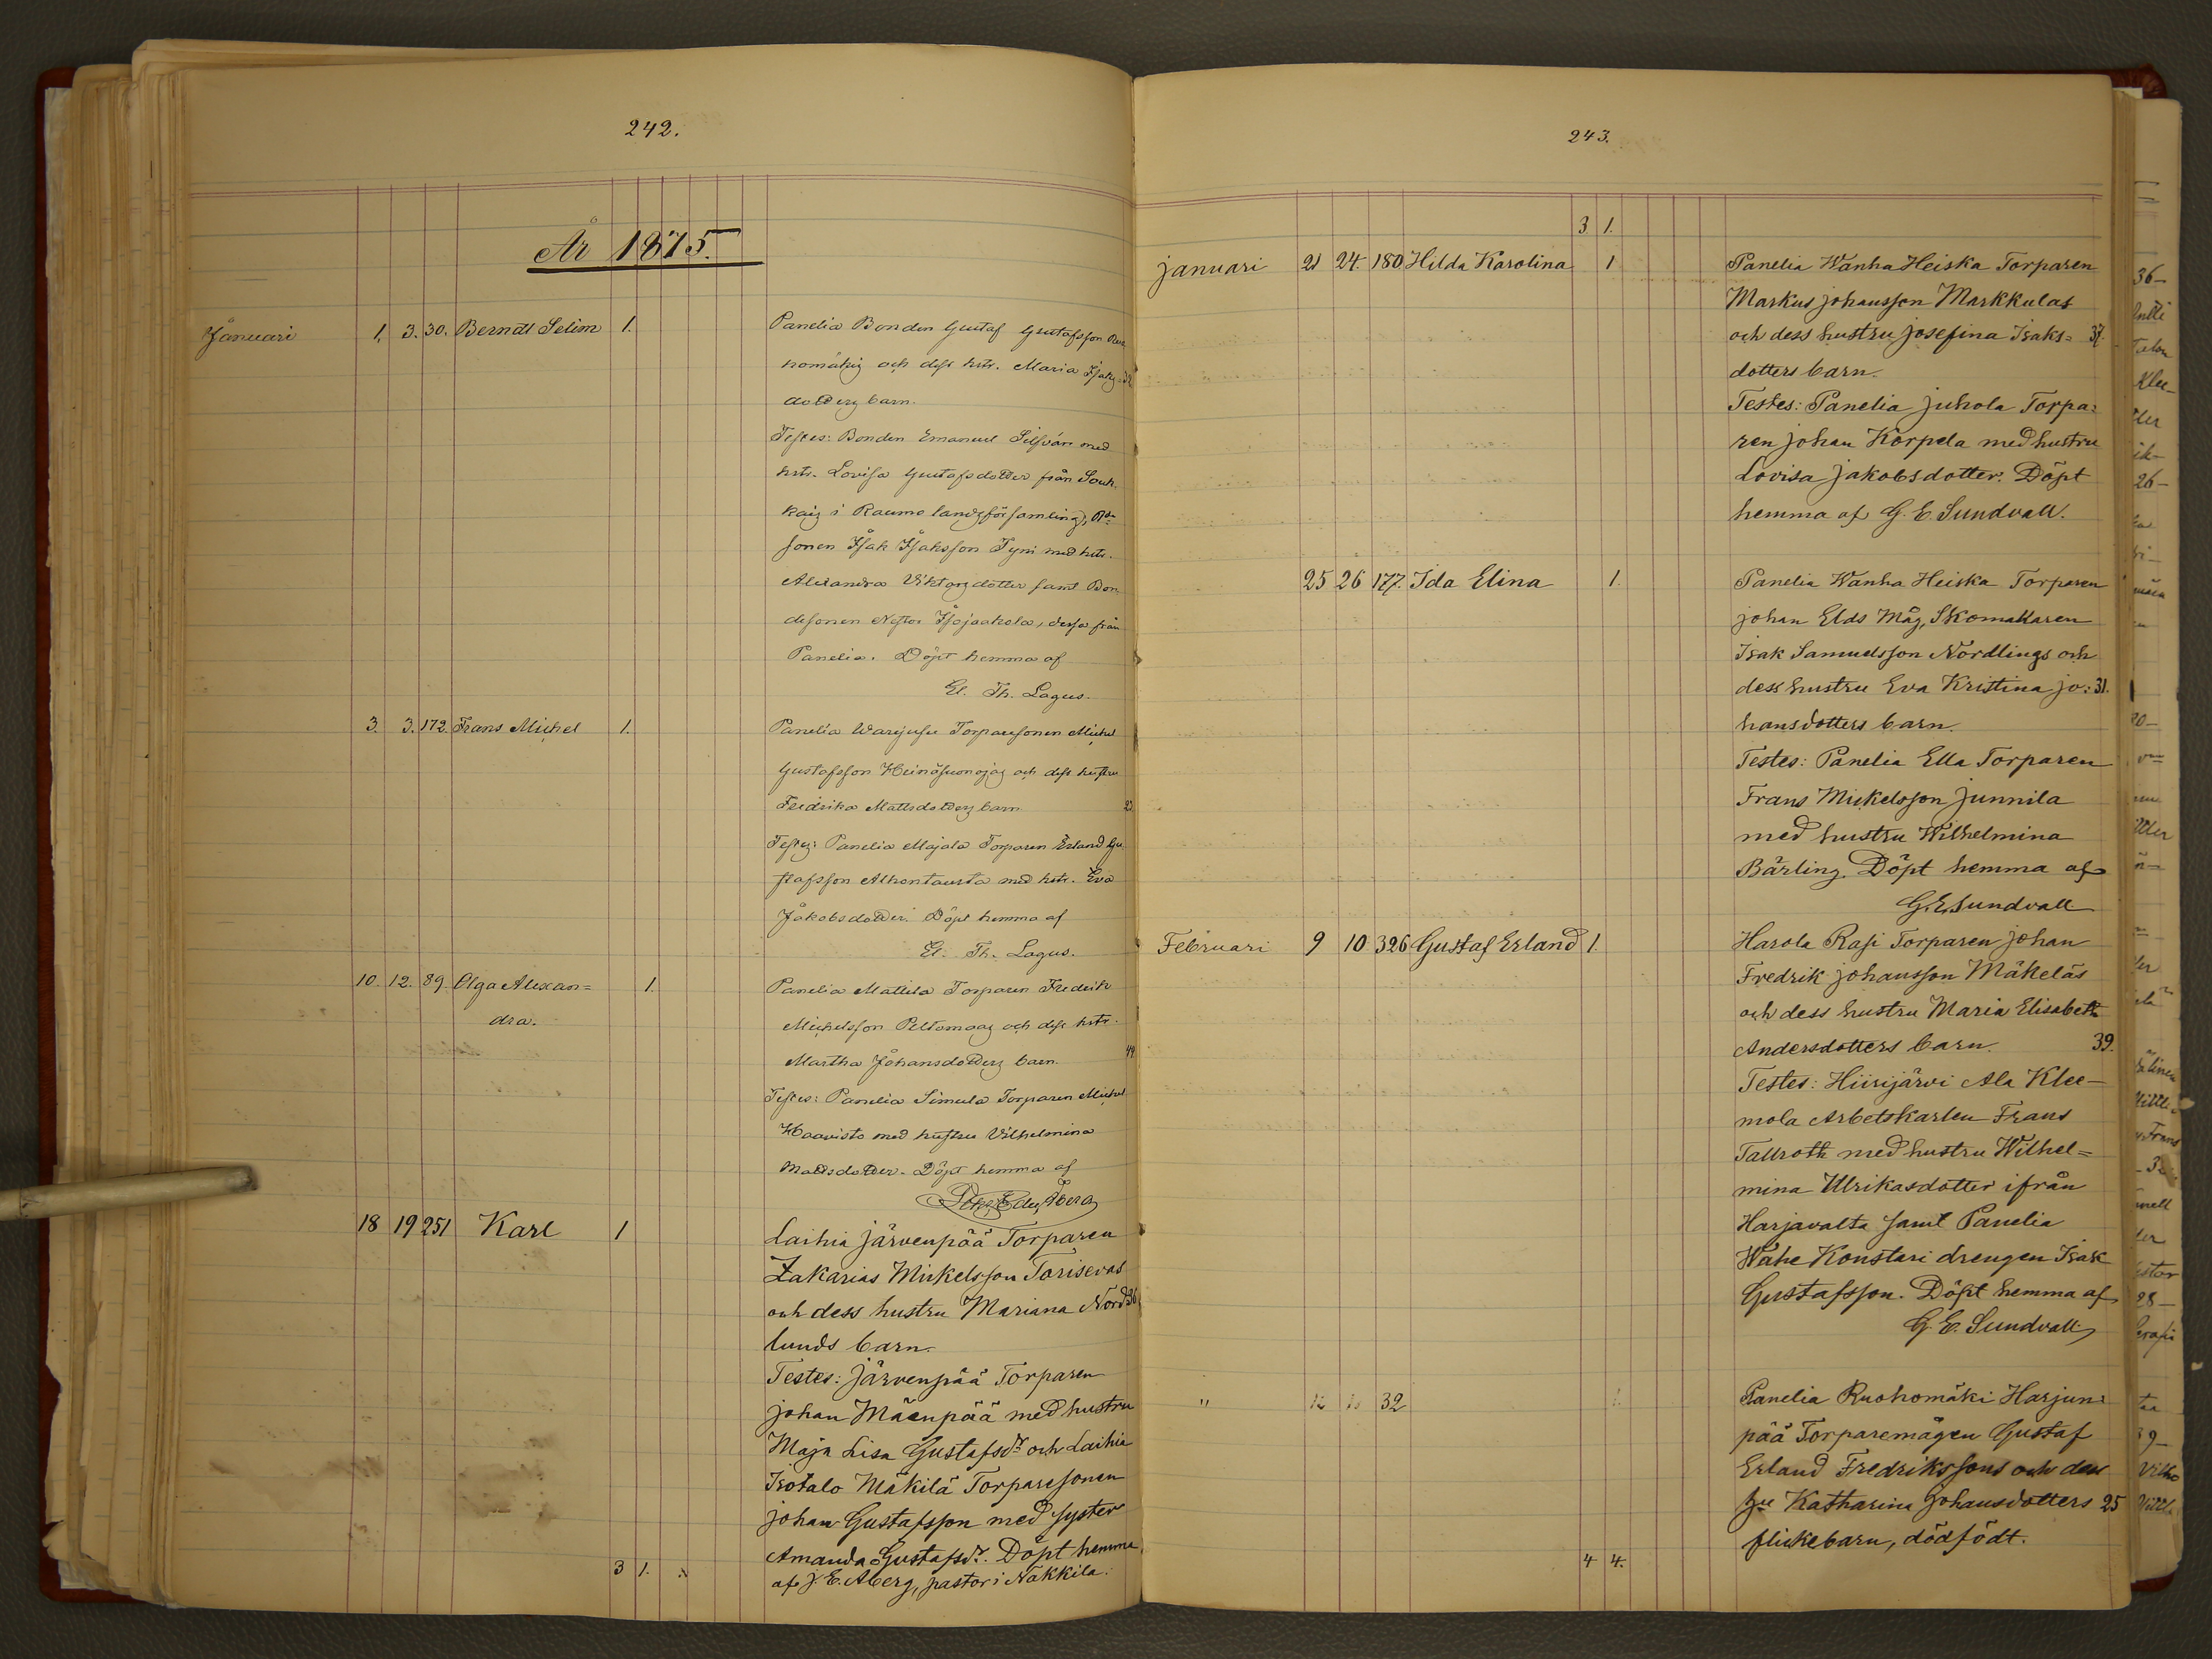 242.
År 1875.
Januari 1. 3. 30. Berndt Selim 1. Panelia Bonden Gustaf Gustafsson Ruo
homäkis och dess hstr. Maria Isaks
dotters barn.
Testes: Bonden Emanuel Silfvän med
hstr. Lovisa Gustafsdotter från Souk
kais i Raumo landsförsamling,
sonen Isak Isaksson Tyni med hstr.
Alexandra Viktorsdotter samt Bon
desonen Nestor Isojaakola, dessa från
Panelia. Döpt hemma af
El. Th. Lagus.
3. 3. 172. Frans Michel 1. Panelia Torparesonen Michel
Gustafsson Heinäsuonojas och dess hustru
Fredrika Mattsdotters barn
Testes: Panelia Majala Torparen Erland Gu
stafsson Alhontausta med hstr. Eva
Jakobsdotter. Döpt hemma af
El. Th. Lagus.
10. 12. 89. Olga Alexan= 1. Panelia Mattila Torparen Fredrik
dra. Michelsson Peltomaas och dess hstr.
Martha Johansdotters barn. 44
Testes: Panelia Simula Torparen Michel
Haavisto med hustru Vilhelmina
Mattsdotter. Döpt hemma af
18 19 251 Karl 1 Laihia Järvenpää Torparen
Zakarias Mickelsson Torisevas
och dess hustru Mariana Nord 36
lunds barn.
Testes: Järvenpää Torparen
Johan Mäenpää med hustru
Maja Lisa Gustafsdr. och Laihia
Isotalo Mäkilä Torparesonen
Johan Gustafsson med syster
Amanda Gustafsdr. Döpt hemma
af J. E. Aberg, pastor i Nakkila.
3 1.
243.
3 1.
Januari 21 24. 180 Hilda Karolina 1 Panelia Wanha Heiska Torparen
Markus Johansson Markkulas
och dess hustru Josefina Isaks= 37.
dotters barn.
Testes: Panelia Juhola Torpa=
ren Johan Korpela med hustru
Lovisa Jakobsdotter. Döpt
hemma af G. E. Sundvall.
25 26 177. Ida Elina 1. Panelia Wanha Heiska Torparen
Johan Elds Måg, Skomakaren
Isak Samuelsson Nordlings och
dess hustru Eva Kristina Jo= 31.
hansdotters barn.
Testes: Panelia Ella Torparen
Frans Mickelsson Junnila
med hustru Wilhelmina
Bärling. Döpt hemma af
G. E. Sundvall
Februari 9 10 326 Gustaf Erland 1. Harola Rasi Torparen Johan
Fredrik Johansson Mäkeläs
och dess hustru Maria Elisabeth
Andersdotters barn. 39.
Testes: Hiirijärvi Ala Klee-
mola Arbetskarlen Frans
Tallroth med hustru Wilhel=
mina Ulrikasdotter ifrån
Harjavalta samt Panelia
Wähe Konstari drengen Isak
Gustafsson. Döpt hemma af
G. E. Sundvall
" 32 1. Panelia Ruohomäki Harjun=
pää Torparemågen Gustaf
Erland Fredrikssons och dess
Katharina Johansdotters 25
flickebarn, dödfödt.
4 4.